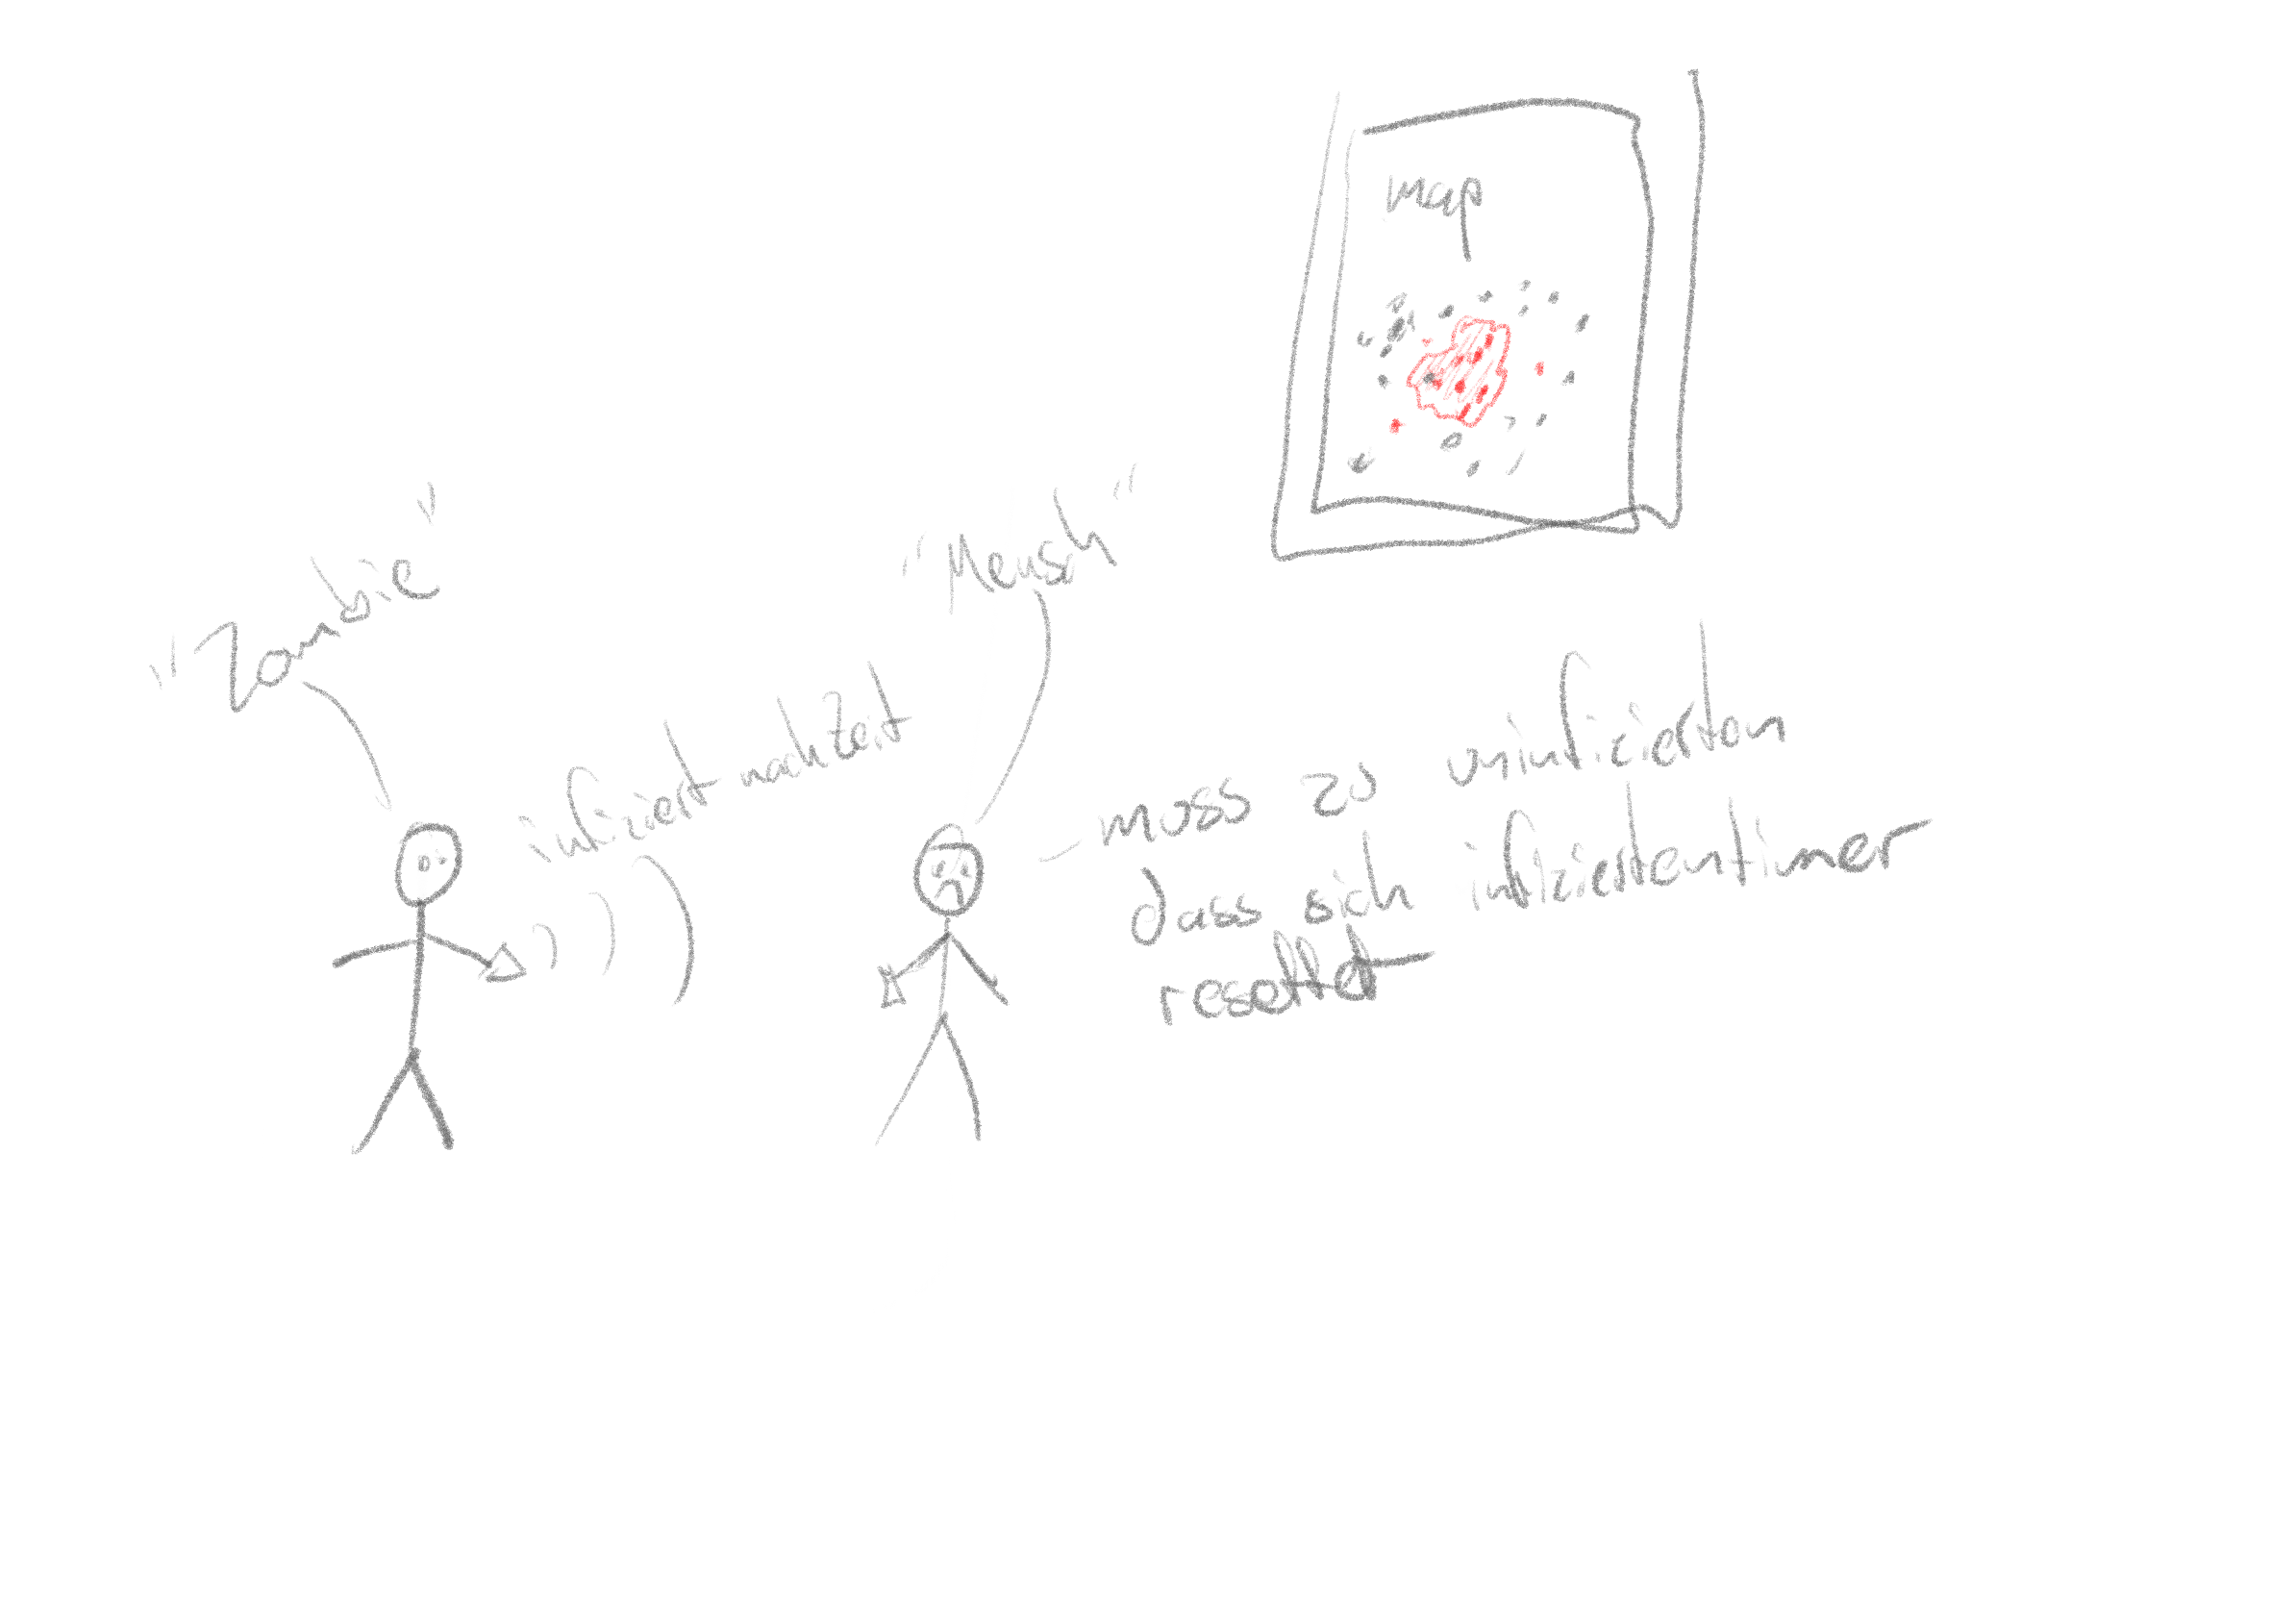 map
"Zombie"
"Mensch"
infiziert nach Zeit
muss zu uninficierten
dass sich infiziertentimer
resettet